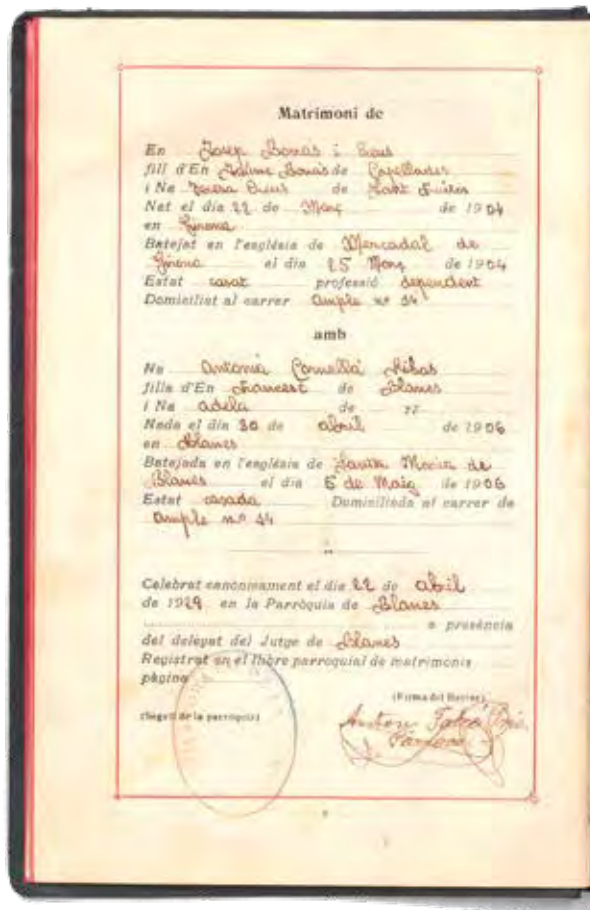 Matrimoni de
En Josep Bonàs i Creus
fill d'En Jaume Bonàs de Capellades
i Na Teresa Creus de Sant Fruitós
Nat el dia 22 de Març de 1904
en Girona
Batejat en l'església de Mercadal de
Girona el dia 25 Març de 1904
Estat casat professió dependent
Domiciliat al carrer Ample nº 34
amb
Na Antonia Cornellà Ribas
filla d'En Francesc de Blanes
i Na Adela de
Nada el dia 30 de abril de 1906
en Blanes
Batejada en l'església de Santa Maria de
Blanes el dia 6 de Maig de 1906
Estat casada Domiciliada al carrer de
Ample nº
Celebrat canònicament el dia 22 de abril
de 1929 en la Parròquia de Blanes
a presència
del delegat del Jutge de Blanes
Registrat en el llibre parroquial de matrimonis
pàgina
(Firma del Rector)
(Segell de la parròquia)
Antoni